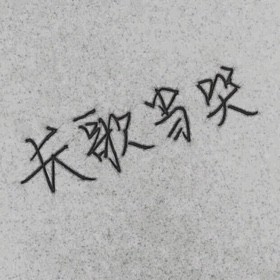 长歌当哭